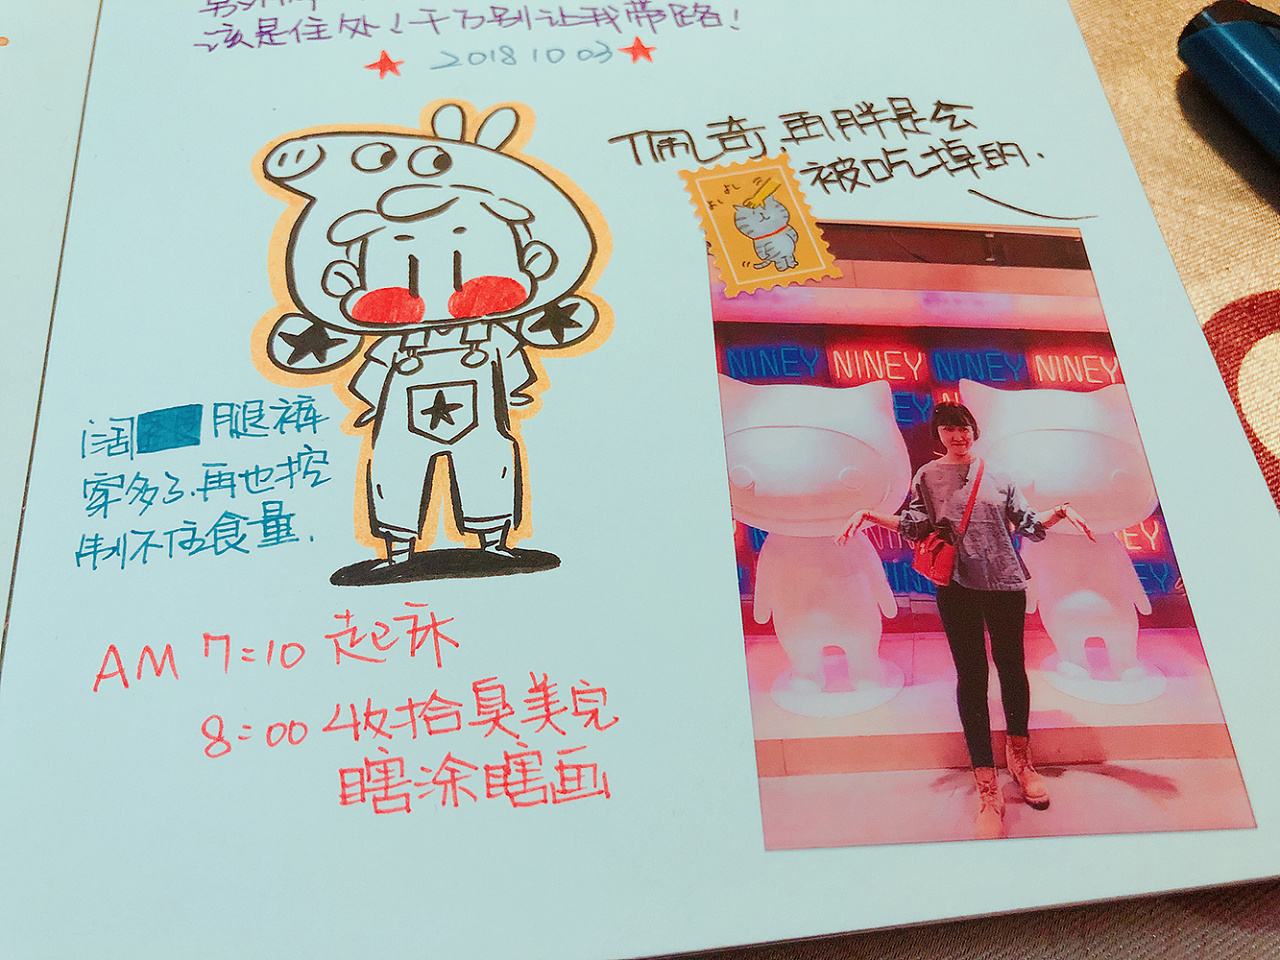 该是住处！千万别让我带路！
2018 10 03
佩奇.再胖是会
被吃掉的.
よし
よし
NINEY NINEY NINEY NINEY
阔 腿裤
穿多了.再也控
制不住食量.
AM 7:10 起床
8:00 收拾臭美完
瞎涂瞎画